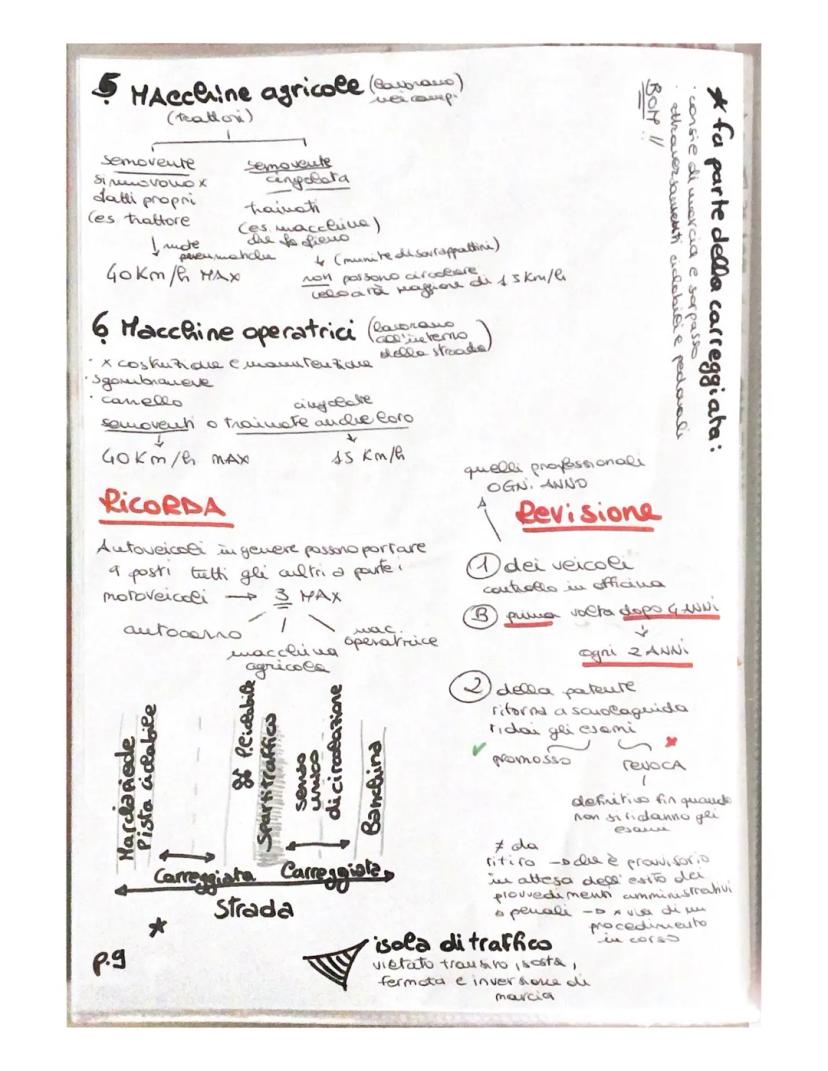 5 MAcchine agricole (lavorano nei campi)
(trattori)
semovente
si muovono x
fatti propri
(es. trattore
↓ ruote pneumatiche
40 Km/h MAX
semovente
cingolata
trainati
(es. macchina)
che fa fieno
↓ (munite di sovrappattini)
non possono circolare
velocità maggiore di 15 Km/h
6 Macchine operatrici (lavorano all'interno della strada)
· x costruzione e manutenzione
· sgombraneve
· carrello
cingolate
semoventi o trainate anche loro
↓ ↓
40 Km/h MAX 15 Km/h
RICORDA
Autoveicoli in genere possono portare
9 posti tutti gli altri a parte i
motoveicoli → 3 MAX
autocarro / macchina agricola \ mac. operatrice
Marciapiede
Pista ciclabile
P. ciclabile
Spartitraffico
senso
unico
di circolazione
Banchina
Carreggiata Carreggiata
Strada
*
p.9
* fa parte della carreggiata:
· corsie di marcia e sorpasso
· attraversamenti ciclabili e pedonali
BOM!!
quelli professionali
OGNI ANNO
Revisione
1 dei veicoli
controllo in officina
B prima volta dopo 4 ANNI
↓
ogni 2 ANNI
2 della patente
ritorna a scuolaguida
ridai gli esami
✓ promosso
✗ revoca
definitivo fin quando
non si ridanno gli
esami
≠ da
ritiro → che è provvisorio
in attesa dell'esito dei
provvedimenti amministrativi
o penali → x via di un
procedimento
in corso
isola di traffico
vietato transito, sosta,
fermata e inversione di
marcia